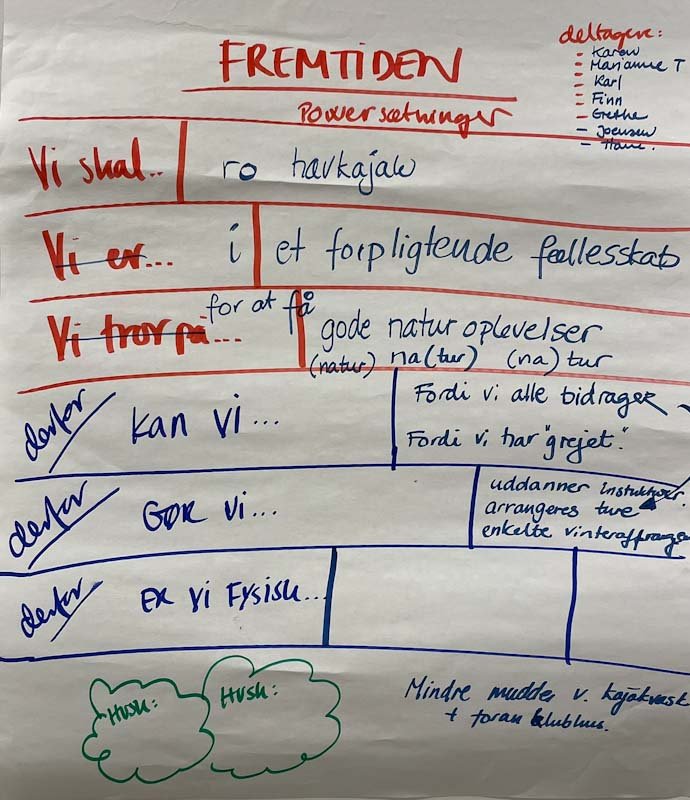 FREMTIDEN
Powersætninger
deltagere:
- Karen
- Marianne T
- Karl
- Finn
- Grethe
- Joensen
Vi skal.. ro havkajak
Vi er... i et forpligtende fællesskab
Vi tror på... for at få gode naturoplevelser
(natur) na(tur) (na)tur
derfor kan vi... Fordi vi alle bidrager
Fordi vi har "grejet".
derfor GØR vi... uddanner instuktører
arrangeres ture
enkelte vinter
derfor ER vi Fysisk...
Husk:
Husk:
Mindre mudder v. kajakvask
+ foran klubhus.